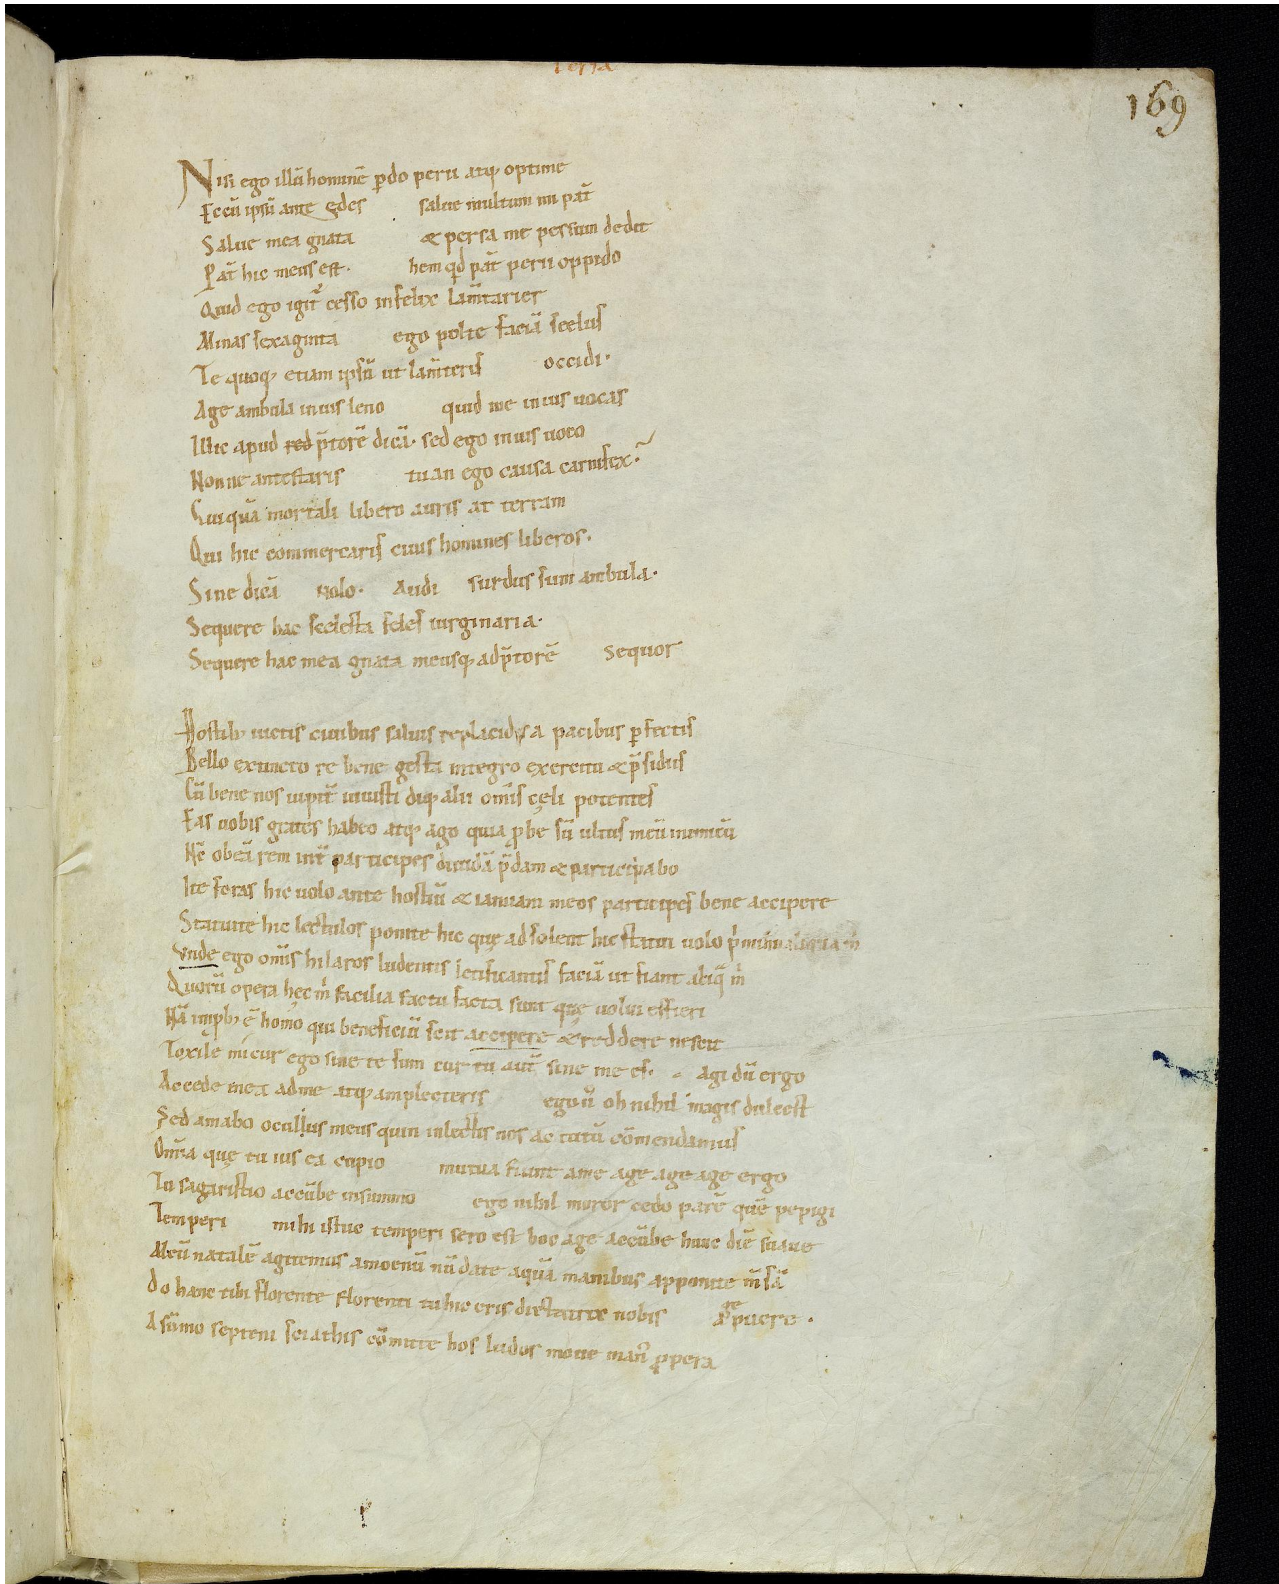 Persa
169
Nisi ego illũ hominẽ ꝑdo perii atq; optime
Eccũ ipsũ ante ędes salue multum mi pat̃
Salue mea gnata & persa me pessum dedit
Pat̃ hic meus est. hem qd pat̃ perii oppido
Quid ego igit̃ cesso infelix lam̃tarier
Minas sexaginta ego pol te faciã scelus
Te quoq; etiam ipsũ ut lam̃teris occidi.
Age ambula in ius leno quid me in ius uocas
Illic apud red p̃torẽ dicã. sed ego in ius uoco
Nonne antestaris tuan ego causa carnifex.
Cuiquã mortali libero auris at terram
Qui hic commercaris ciuis homines liberos.
Sine dicã nolo. Audi surdus sum ambula.
Sequere hac scelesta feles uirginaria.
Sequere hac mea gnata meusq; ad p̃torẽ sequor
Hostib; uictis ciuibus saluis re placida pacibus ꝑfectis
Bello extincto re bene gesta integro exercitu & p̃sidiis
Cũ bene nos iupit̃ iuuisti diiq; alii om̃s cęli potentes
Eas uobis grates habeo atq; ago quia ꝓbe sũ ultus meũ inimicũ
Nc̃ obeã rem int̃ participes diuidã p̃dam & participabo
Ite foras hic uolo ante hostiũ & ianuam meos participes bene accipere
Statuite hic lectulos ponite hic quę adsolent hic statui uolo
Vnde ego om̃is hilaros ludentis lętificantis faciã ut fiant
Quorũ opera hęc m̃ facilia factu facta sunt quę uolui effieri
Nã imp̃b; ẽ homo qui beneficiũ scit accipere & reddere nescit
Toxile mi cur ego sine te sum cur tu aut̃ sine me es. agi dũ ergo
Accede mea ad me atq; amplecteris ego ũ oh nihil magis dulcest
Sed amabo ocillus meus quin in lectis nos actutũ cõmendamus
Om̃a quę tu uis ea cupio mutua fiunt a me age age age ergo
Tu sagaristio accũbe in summo ego nihil moror cedo parẽ quẽ pepigi
Temperi mihi istuc temperi sero est hoc age accũbe hunc diẽ suaue
Meũ natalẽ agitemus amoenũ nũ date aquã manibus apponite m̃sã
Do hanc tibi florente florenti tu hic eris dictatrix nobis
A sũmo septeni sciathis cõmitte hos ludos moue man9 ꝓpera